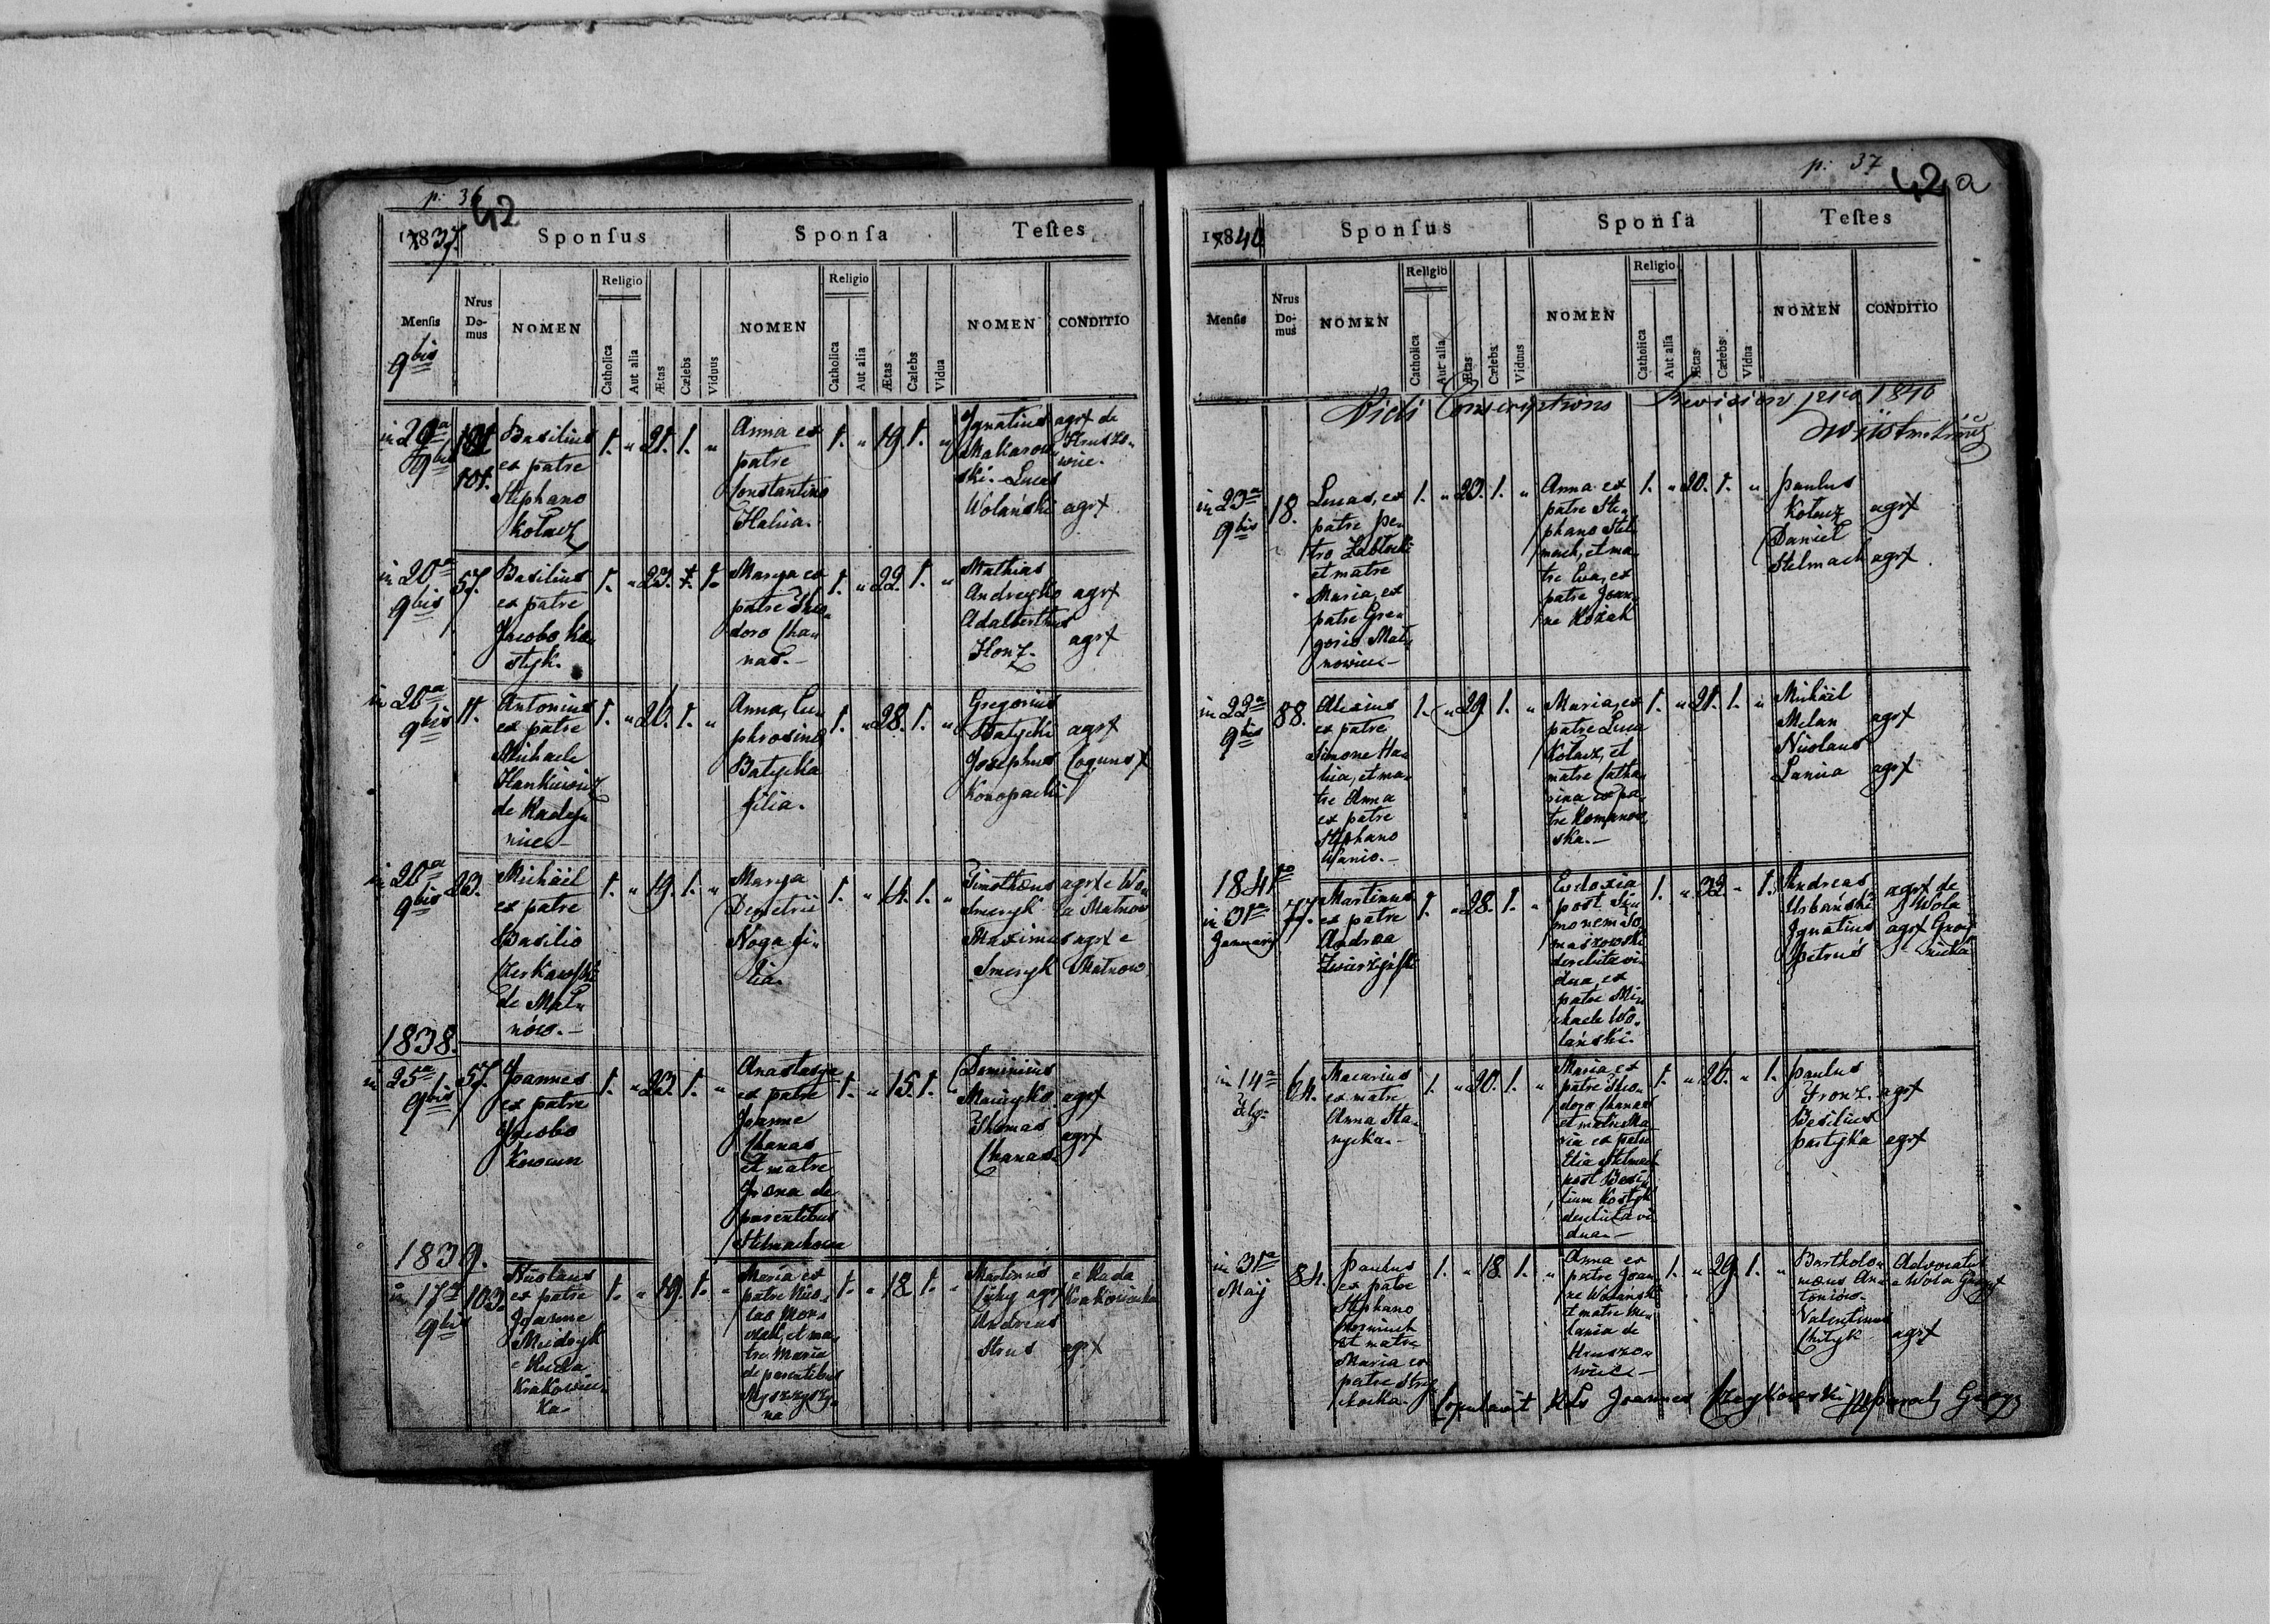 p. 36
42
1837.
Sponſus
Sponſa
Teſtes
Menſis
9bis
Nrus Do-mus
NOMEN
Religio
Catholica
Aut alia
Ætas
Cælebs
Viduus
NOMEN
Religio
Catholica
Aut alia
Ætas
Cælebs
Vidua
NOMEN
CONDITIO
in 29a
9bis
101.
Basilius
ex patre
Stephano
Kołacz
1. " 21. 1. "
Anna ex
patre
Constantino
Halua.
1. " 19. 1. "
Ignatius
Makarow
ski. Lucas
Wolański
agr. de
Hruszo-
wice.
agr.
in 20a
9bis
57.
Basilius
ex patre
Jacobo Ko
styk.
1. " 23. 1.
Marya ex
patre Theo
doro Cha-
nas.
1. " 22. 1. "
Mathias
Andreyko
Adalbertus
Honz.
agr.
agr.
in 20a
9bis
11.
Antonius
ex patre
Michaele
Hankiewicz
de Rady-
nice
1. " 26. 1. "
Anna, Eu-
phrosina
Batycka
filia.
1. " 28. 1. "
Gregorius
Batycki
Josephus
Konopacki
agr.
Coquus
in 20a
9bis
23.
Michäel
ex patre
Basilio
de Mal-
nów.
1. " 19. 1. "
Marya
Demetrii
Noga fi-
lia.
1. " 14. 1. "
Timothæus
Smeryk
Maximus
Smeryk
agr. e Wo-
la Malnow
agr. e
Malnow
1838.
in 25a
9bis
57.
Joannes
ex patre
Jacobo
1. " 23. 1. "
Anastasya
ex patre
Joanne
Chanas
et matre
de
parentibus
Stelmachowa
1. " 15. 1. "
Dominicus
Macieyko
Thomas
Chanas
agr.
agr.
1839.
in 17a
9bis
103.
Nicolaus
ex patre
Joanne
Miedzyk
e Ruda
Krakowiec-
ka
1. " 19. 1. "
Maria ex
patre Nico-
lao
et ma-
tre Maria
de parentibus
1. " 18. 1. "
Martinus
agr.
Andreas
Strus
e Ruda
Krakowiecka
agr.
p: 37
42 a
1840
Sponſus
Sponſa
Teſtes
Menſis
Nrus Do-mus
NOMEN
Religio
Catholica
Aut alia
Ætas
Cælebs
Viduus
NOMEN
Religio
Catholica
Aut alia
Ætas
Cælebs
Vidua
NOMEN
CONDITIO
Vidi Conscriptions Revision pro 1840
in 23a
9bis
18.
Lucas, ex
patre Pe-
tro Zabłocki
et matre
Maria, ex
patre Gre-
gorio Mal-
nowicz
1. " 23. 1. "
Anna ex
patre Ste-
phano Stel
mach, et ma-
tre Eva, ex
patre Joan-
ne Kozak
1. " 20. 1. "
Paulus
Kołacz
Daniel
Stelmach
agr.
agr.
in 22a
9bis
88.
Alexius
ex patre
Simone Ha-
lua, et ma-
tre Anna
ex patre
Stephano
Wanio.
1. " 29. 1. "
Maria, ex
patre Luca
Kołacz, et
matre Catha-
rina ex pa-
tre Romanow-
ska.
1. " 21. 1. "
Michäel
Milan
Nicolaus
Lania
agr.
agr.
1841
in 31a
January
77.
Martinus
ex patre
Andrea
1. " 28. 1. "
Eudoxia
post Si-
monem To-
maszowski
derelicta vi-
dua, ex
patre Mi-
chaele Wo-
lański.
1. " 32. " 1.
Andreas
Urbański
Ignatius
Petrus
agr. de
Wola
agr.
in 14a
Feb.
64.
Macarius
ex matre
Anna Sta-
nycka.
1. " 20. 1. "
Maria, ex
patre Theo-
doro Chanas
et matre Ma-
ria ex patre
Elia Stelmach
post Basi-
lium Kostyk
derelicta vi-
dua
1. " 26. " 1.
Paulus
Fronz.
Basilius
Partyka
agr.
agr.
in 31a
May
84.
Paulus
ex patre
Stephano
et matre
Maria ex
patre
1. " 18. 1. "
Anna ex
patre Joan-
ne Wolański
et matre Me-
lania de
Hruszo-
wice
1. " 29. 1. "
Bartholo-
mæus An-
toniów
Valentinus
Chityk
Advocatus
e Wola
agr.
Copulavit Joannes